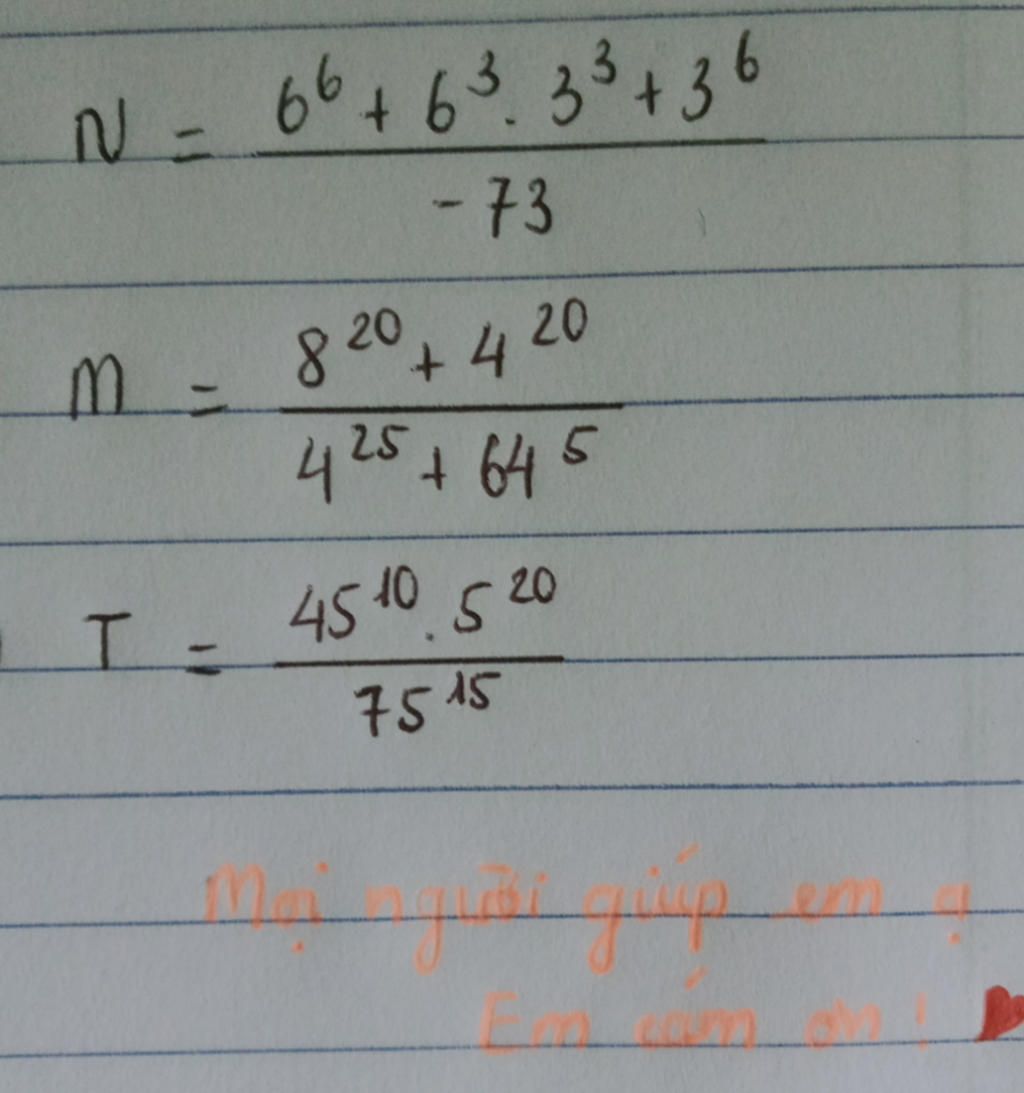 N = (6⁶ + 6³ . 3³ + 3⁶) / (-73)
M = (8²⁰ + 4²⁰) / (4²⁵ + 64⁵)
T = (45¹⁰ . 5²⁰) / 75¹⁵
Mọi người giúp em ạ
Em cám ơn !